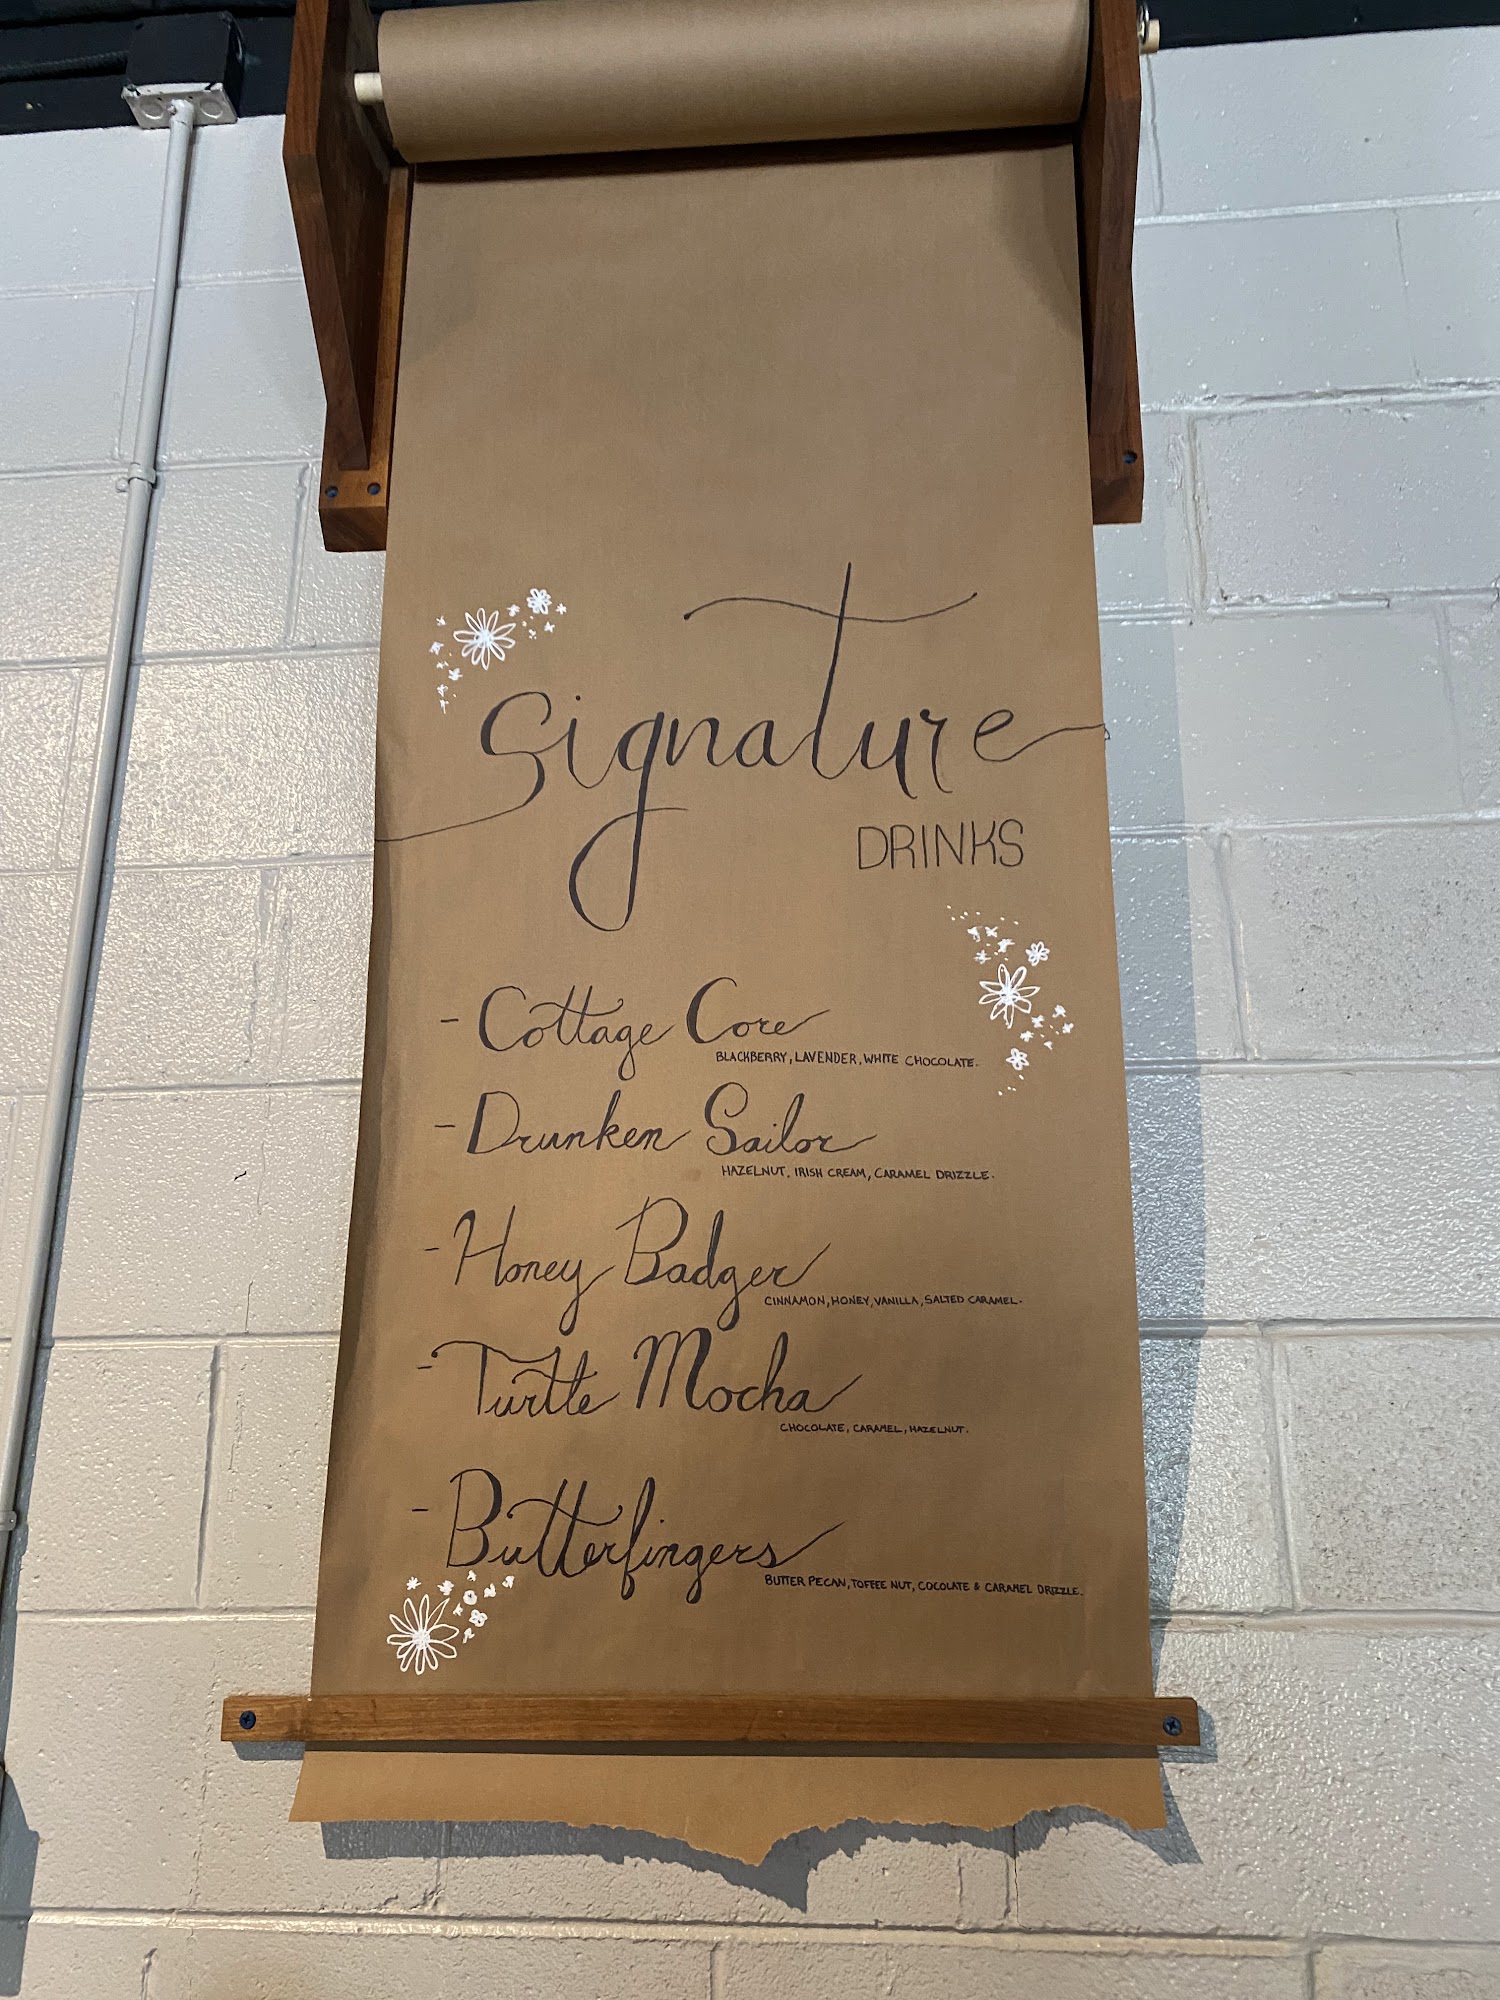 Signature
DRINKS
- Cottage Core
BLACKBERRY, LAVENDER, WHITE CHOCOLATE.
- Drunken Sailor
HAZELNUT, IRISH CREAM, CARAMEL DRIZZLE.
- Honey Badger
CINNAMON, HONEY, VANILLA, SALTED CARAMEL.
- Turtle Mocha
CHOCOLATE, CARAMEL, HAZELNUT.
- Butterfingers
BUTTER PECAN, TOFFEE NUT, COCOLATE & CARAMEL DRIZZLE.